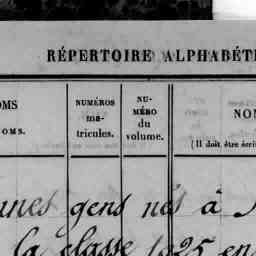 RÉPERTOIRE ALPHABÉT
OMS
OMS.
NUMÉROS
ma-
tricules.
NU-
MÉRO
du
volume.
NO
(Il doit être écri
unes gens nés à
la classe 1825 en